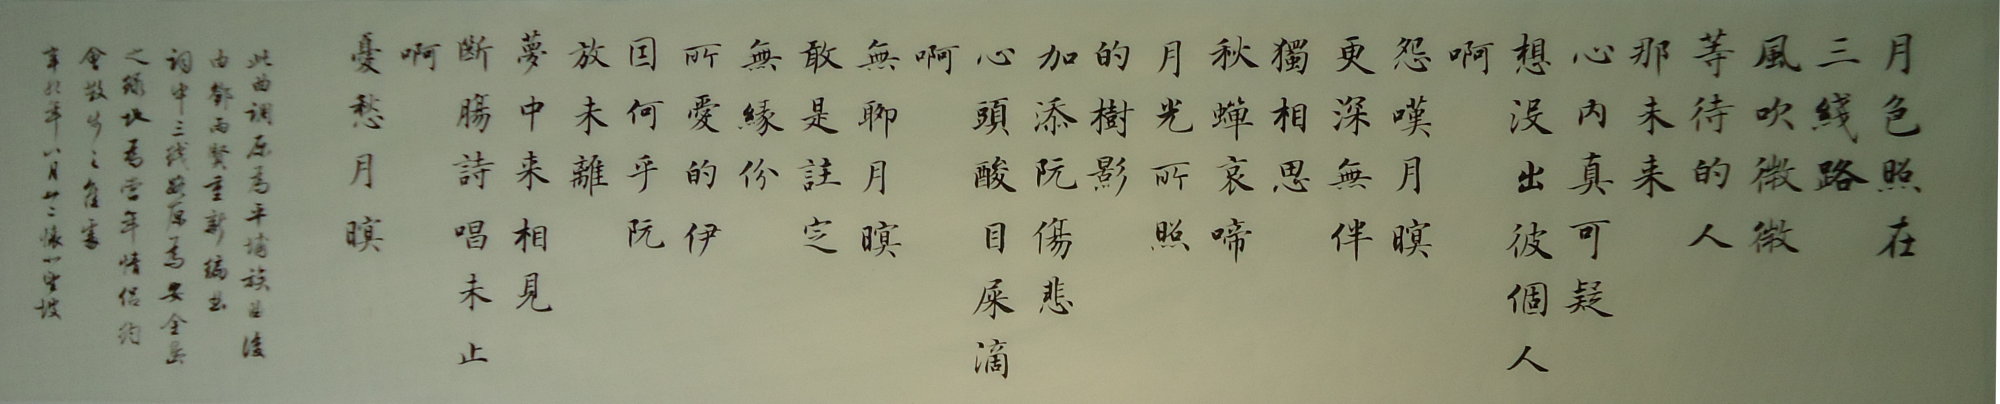 月色照在
三线路
風吹微微
等待的人
那未来
心内真可疑
想没出彼個人
啊
怨嘆月暝
更深無伴
獨相思
秋蟬哀啼
月光所照
的樹影
加添阮傷悲
心頭酸目屎滴
啊
無聊月暝
敢是註定
無緣份
所愛的伊
因何乎阮
放未離
夢中来相見
断腸詩唱未止
啊
憂愁月暝
此曲調原為平埔族
由鄧雨賢重新編曲
詞中三线路原為安全島
之綠地為當年情侶約
會散步之
年八月廿二